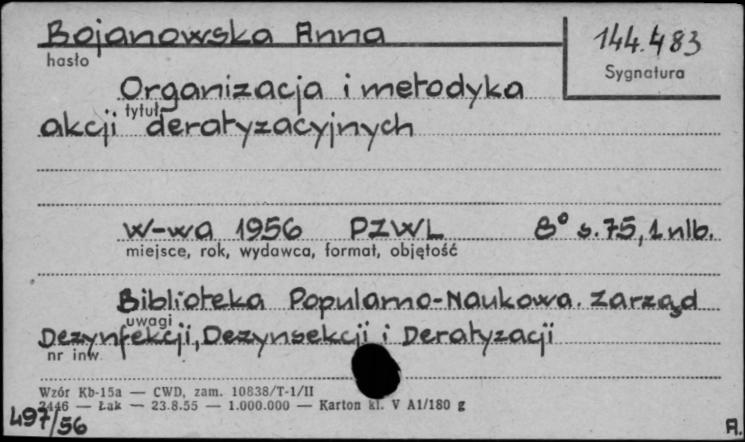 Bojanowska Anna
144.483
hasło
Sygnatura
Organizacja i metodyka
tytuł
akcji deratyzacyjnych
W-wa 1956 PZWL 8° s.75, 1 nlb.
miejsce, rok, wydawca, format, objętość
Biblioteka Popularno-Naukowa. Zarząd
uwagi
Dezynfekcji, Dezynsekcji i Deratyzacji
nr inw.
Wzór Kb-15a — CWD, zam. 10838/T-1/II
2446 — Łak — 23.8.55 — 1.000.000 — Karton kl. V A1/180 g
497/56
A.